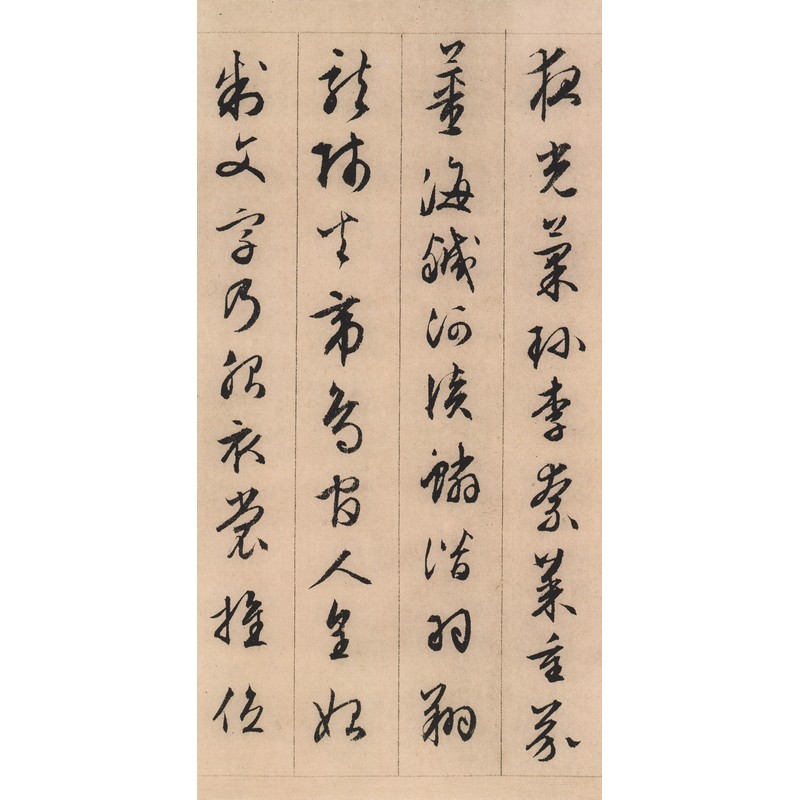 夜光菓珍李柰菜重芥
薑海鹹河淡鱗潛羽翔
龍師火帝鳥官人皇始
制文字乃服衣裳推位